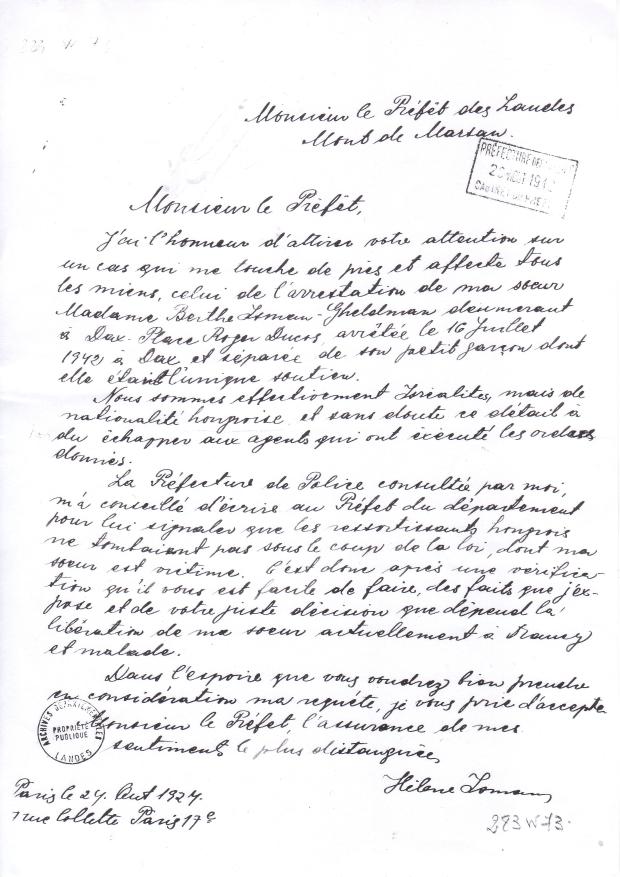 Monsieur le Préfêt des Landes
Mont de Marsan.
PRÉFECTURE DES
CABINET DU PRÉFET
Monsieur le Préfêt,
J'ai l'honneur d'attirer votre attention sur
un cas qui me touche de près et affecte tous
les miens, celui de l'arrestation de ma soeur
Madame Berthe Loman-Gheldman demeurant
à Dax-Place Roger Ducos, arrêtée le 16 Juillet
1942 à Dax et séparée de son petit garçon dont
elle était l'unique soutien.
Nous sommes effectivement Israélites, mais de
nationalité hongroise et sans doute ce détail à
du échapper aux agents qui ont éxécuté les ordres
donnés.
La Préfecture de Police consultée par moi,
m'à conseillé d'écrire au Préfet du département
pour lui signaler que les ressortissants hongrois
ne tombaient pas sous le coup de la loi, dont ma
soeur est victime. C'est donc après une vérifica-
tion qu'il vous est facile de faire, des faits que j'ex-
pose et de votre juste décision que dépend la
libération de ma soeur actuellement à Drancy
et malade.
Dans l'espoire que vous voudrez bien prendre
en considération ma requête, je vous prie d'accepte
Monsieur le Préfet, l'assurance de mes
sentiments le plus distinguées
Hélène Loman
Paris le 24. Aout 1924.
7 rue Collette Paris 17e
283 W 73.
ARCHIVES DÉPARTEMENTALES
PROPRIÉTÉ
PUBLIQUE
LANDES